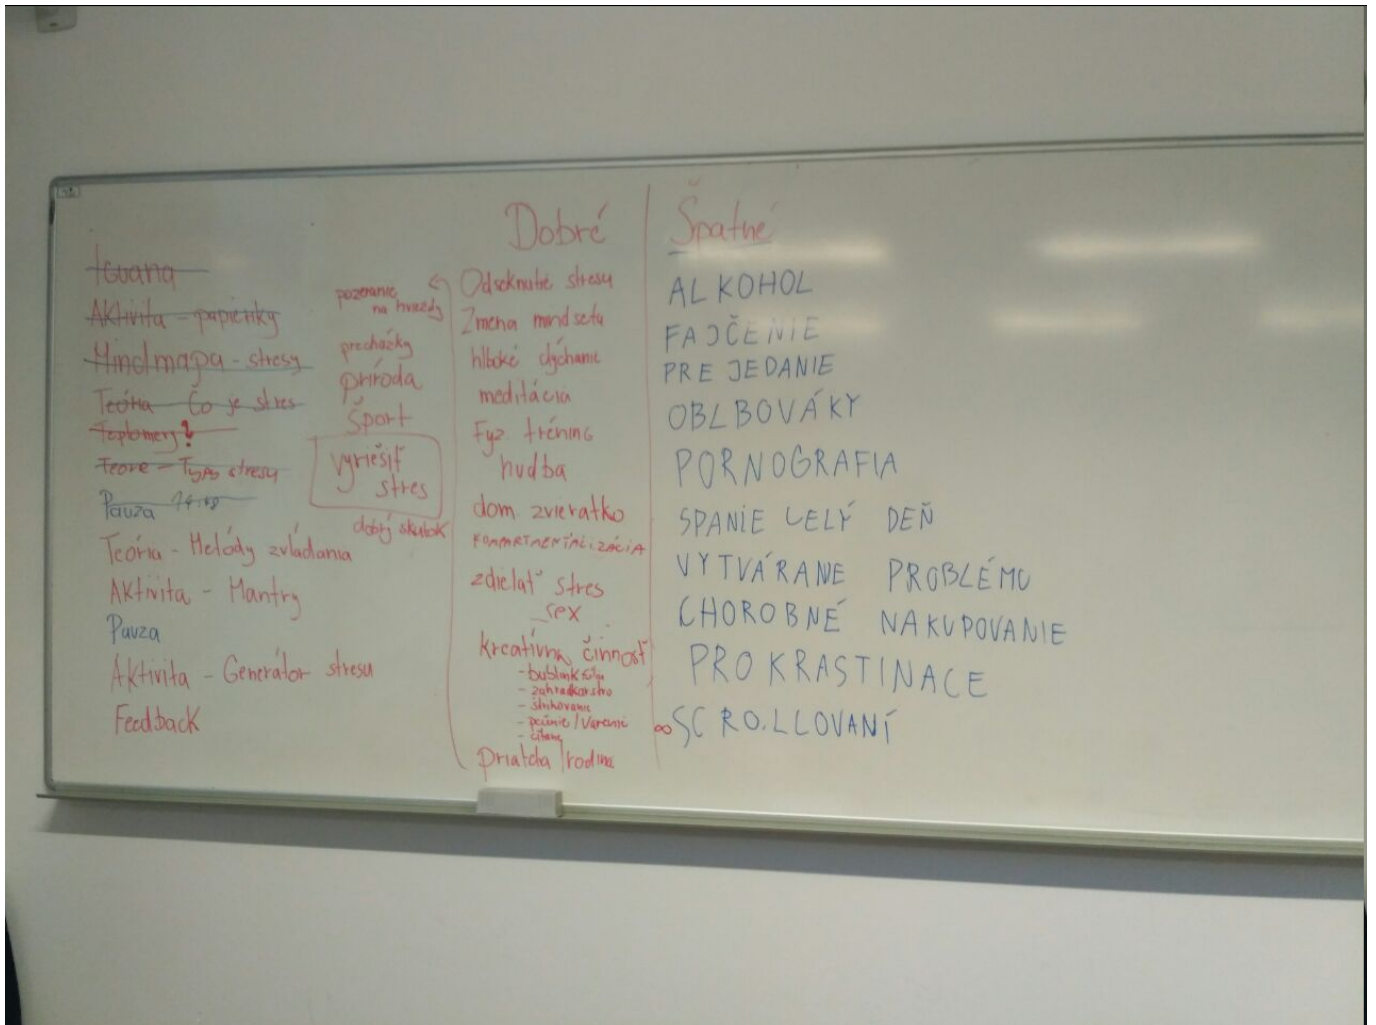 Aktivita - papieriky
Mindmapa - stresy
Teória Čo je stres
Teplomery?
Teorie - Typy stresu
Pauza
Teória - Metódy zvládania
Aktivita - Mantry
Pauza
Aktivita - Generátor stresu
Feedback
pozeranie
na hviezdy
prechádzky
príroda
Šport
vyriešiť
stres
dobrý skutok
Dobré
Odseknutie stresu
Zmena mindsetu
hlboké dýchanie
meditácia
Fyz. tréning
hudba
dom zvieratko
KOMPARTMENTALIZÁCIA
zdielať stres
sex
kreatívna činnosť
- bublink fólia
- zahradkarstvo
- štrikovanie
- pečenie / varenie
- čítanie
priatelia / rodina
Špatné
ALKOHOL
FAJČENIE
PREJEDANIE
OBLBOVÁKY
PORNOGRAFIA
SPANIE CELÝ DEŇ
VYTVÁRANE PROBLÉMU
CHOROBNÉ NAKUPOVANIE
PROKRASTINACE
∞ SCROLLOVANÍ